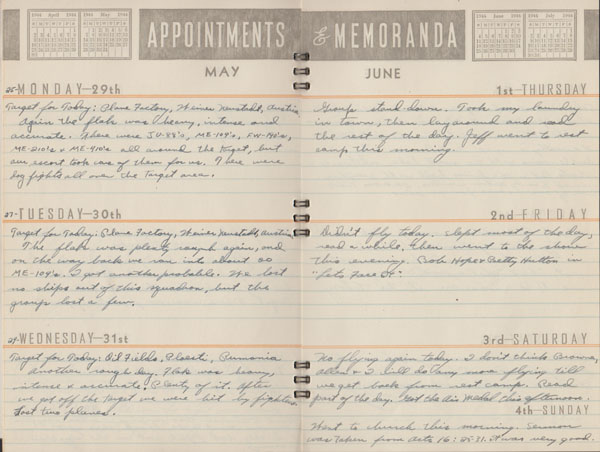 1944 April 1944
1944 May 1944
APPOINTMENTS & MEMORANDA
1944 June 1944
1944 July 1944
MAY
JUNE
25 MONDAY—29th
Target for Today: Plane Factory, Weiner Neustadt, Austria
Again the flak was heavy, intense and
accurate. There were JU-88's, ME-109's, FW-190's,
ME-210's & ME-410's all around the target, but
our escort took care of them for us. There were
dog fights all over the target area.
27 TUESDAY—30th
Target for Today: Plane Factory, Weiner Neustadt, Austria
The flak was plenty rough again, and
on the way back we ran into about 20
ME-109's. I got another probable. We lost
no ships out of this squadron, but the
group lost a few.
29 WEDNESDAY—31st
Target for Today: Oil Fields, Ploesti, Rumania
Another rough day. Flak was heavy,
intense & accurate & plenty of it. After
we got off the target we were hit by fighters.
Lost two planes.
1st THURSDAY
Group stand down. Took my laundry
in town, then lay around and read
the rest of the day. Jeff went to rest
camp this morning.
2nd FRIDAY
Didn't fly today. Slept most of the day,
read a while, then went to the show
this evening. Bob Hope & Betty Hutton in
"Let's Face It"
3rd SATURDAY
No flying again today. I don't think Browne,
Allen & I will do any more flying till
we get back from rest camp. Read
part of the day. Got the Air Medal this afternoon.
4th SUNDAY
Went to church this morning. Sermon
was taken from Acts 16: 25-31. It was very good.